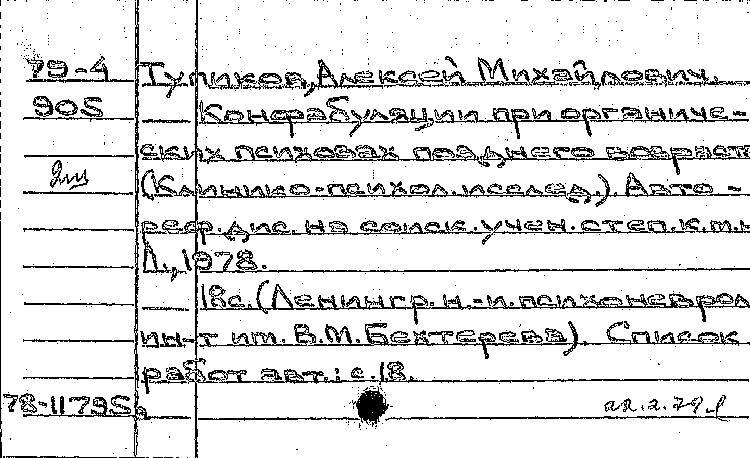 79-4 Тупиков, Алексей Михайлович.
905 Конфабуляции при органиче-
ских психозах позднего возраст
(Клинико-психол. исслед.). Авто-
реф. дис. на соиск. учен. степ. к.м.н
Л., 1978.
18с. (Ленингр. н.-и. психоневрол
ин-т им. В.М. Бехтерева). Список
работ авт.: с. 18.
78-11795